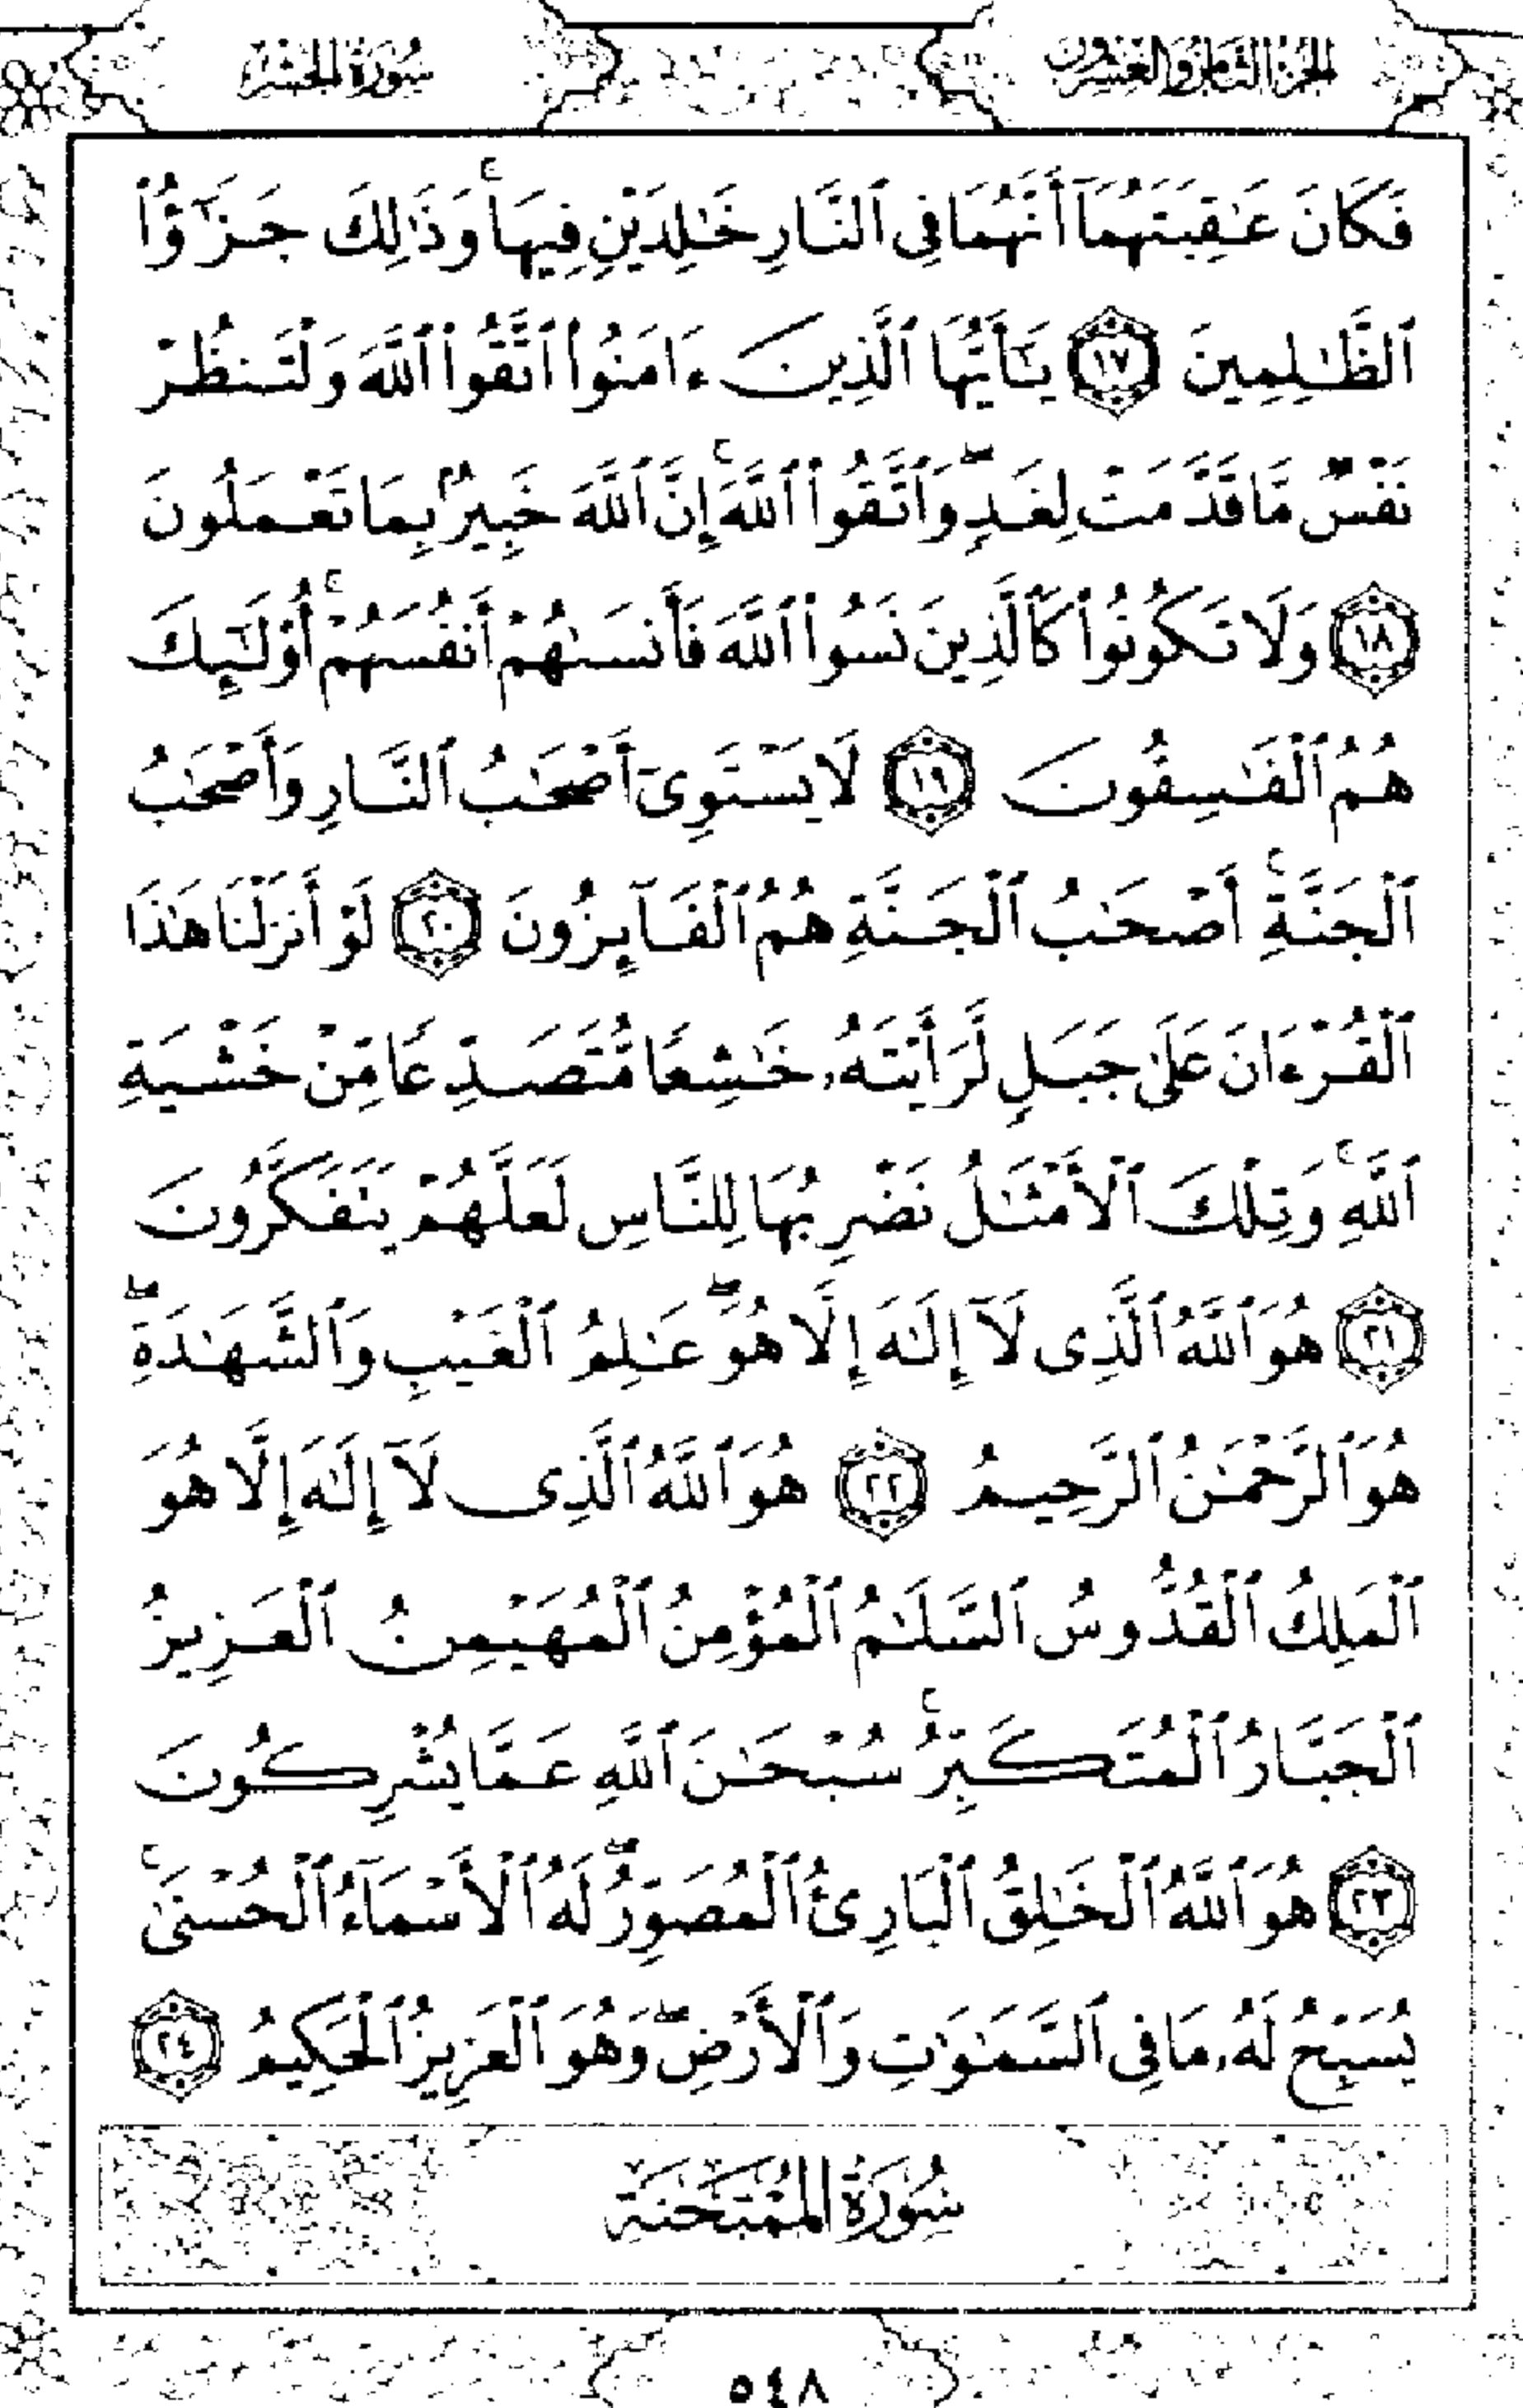 الجزء الثامن والعشرون
سورة الحشر
فَكَانَ عَـٰقِبَتَهُمَآ أَنَّهُمَا فِى ٱلنَّارِ خَـٰلِدَيْنِ فِيهَا ۚ وَذَٰلِكَ جَزَٰٓؤُا۟
ٱلظَّـٰلِمِينَ ١٧ يَـٰٓأَيُّهَا ٱلَّذِينَ ءَامَنُوا۟ ٱتَّقُوا۟ ٱللَّهَ وَلْتَنظُرْ
نَفْسٌ مَّا قَدَّمَتْ لِغَدٍ ۖ وَٱتَّقُوا۟ ٱللَّهَ ۚ إِنَّ ٱللَّهَ خَبِيرٌۢ بِمَا تَعْمَلُونَ
١٨ وَلَا تَكُونُوا۟ كَٱلَّذِينَ نَسُوا۟ ٱللَّهَ فَأَنسَىٰهُمْ أَنفُسَهُمْ ۚ أُو۟لَـٰٓئِكَ
هُمُ ٱلْفَـٰسِقُونَ ١٩ لَا يَسْتَوِىٓ أَصْحَـٰبُ ٱلنَّارِ وَأَصْحَـٰبُ
ٱلْجَنَّةِ ۚ أَصْحَـٰبُ ٱلْجَنَّةِ هُمُ ٱلْفَآئِزُونَ ٢٠ لَوْ أَنزَلْنَا هَـٰذَا
ٱلْقُرْءَانَ عَلَىٰ جَبَلٍ لَّرَأَيْتَهُۥ خَـٰشِعًا مُّتَصَدِّعًا مِّنْ خَشْيَةِ
ٱللَّهِ ۚ وَتِلْكَ ٱلْأَمْثَـٰلُ نَضْرِبُهَا لِلنَّاسِ لَعَلَّهُمْ يَتَفَكَّرُونَ
٢١ هُوَ ٱللَّهُ ٱلَّذِى لَآ إِلَـٰهَ إِلَّا هُوَ ۖ عَـٰلِمُ ٱلْغَيْبِ وَٱلشَّهَـٰدَةِ ۖ
هُوَ ٱلرَّحْمَـٰنُ ٱلرَّحِيمُ ٢٢ هُوَ ٱللَّهُ ٱلَّذِى لَآ إِلَـٰهَ إِلَّا هُوَ
ٱلْمَلِكُ ٱلْقُدُّوسُ ٱلسَّلَـٰمُ ٱلْمُؤْمِنُ ٱلْمُهَيْمِنُ ٱلْعَزِيزُ
ٱلْجَبَّارُ ٱلْمُتَكَبِّرُ ۚ سُبْحَـٰنَ ٱللَّهِ عَمَّا يُشْرِكُونَ
٢٣ هُوَ ٱللَّهُ ٱلْخَـٰلِقُ ٱلْبَارِئُ ٱلْمُصَوِّرُ ۖ لَهُ ٱلْأَسْمَآءُ ٱلْحُسْنَىٰ ۚ
يُسَبِّحُ لَهُۥ مَا فِى ٱلسَّمَـٰوَٰتِ وَٱلْأَرْضِ ۖ وَهُوَ ٱلْعَزِيزُ ٱلْحَكِيمُ ٢٤
سُورَةُ المُمْتَحَنَة
٥٤٨